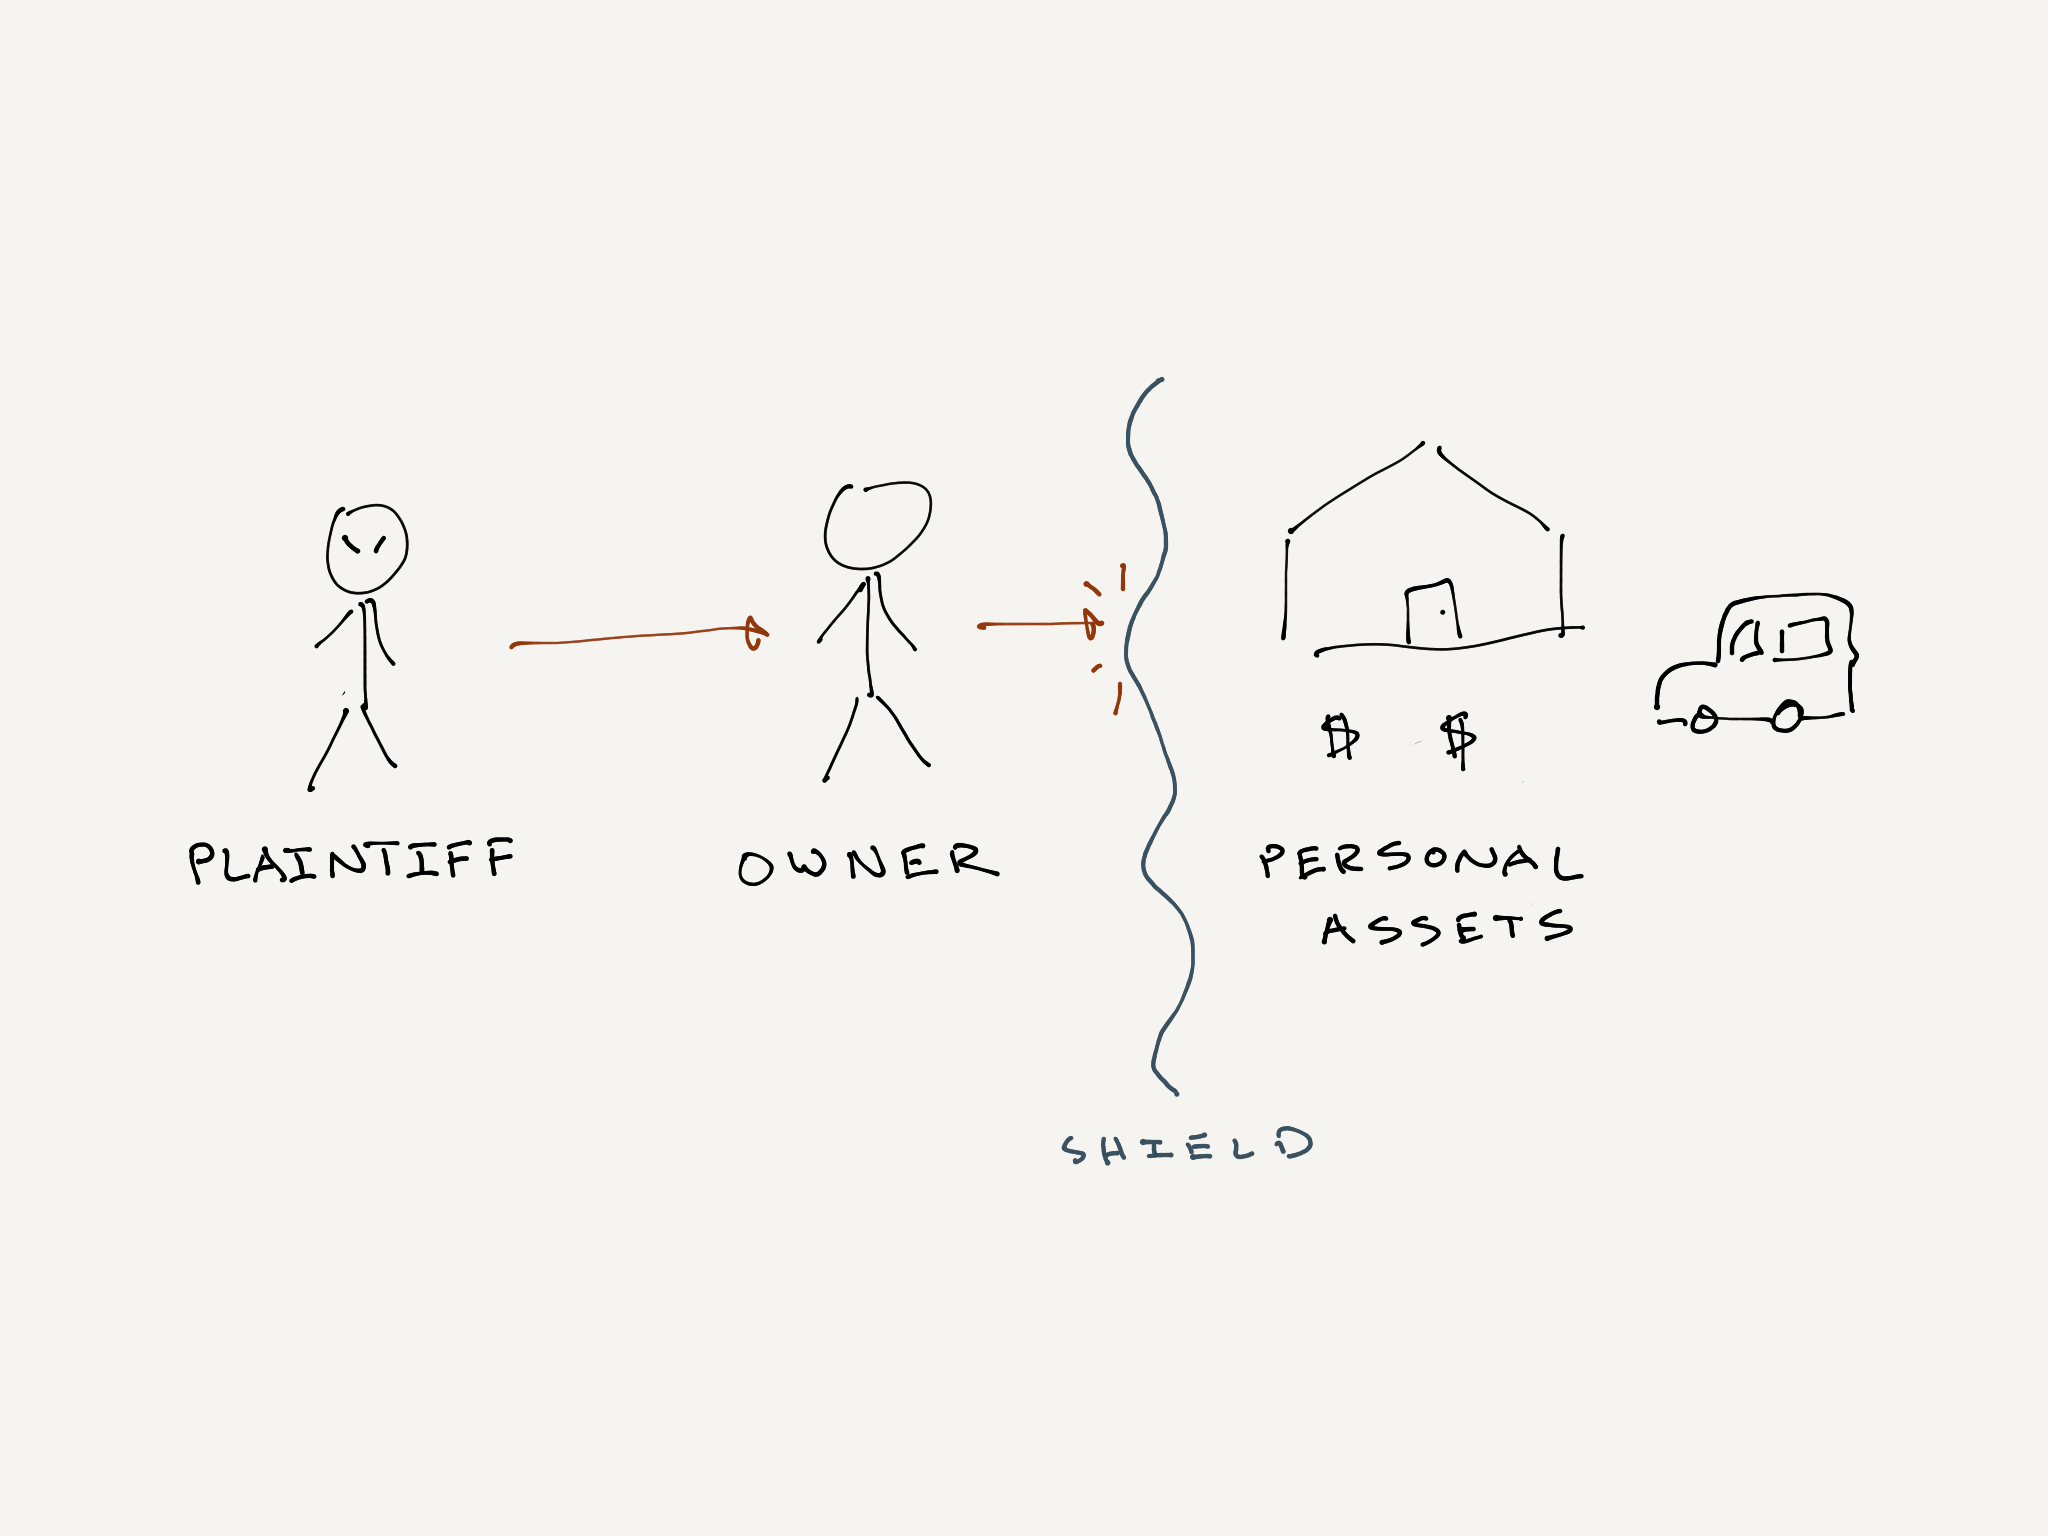 $ $
PLAINTIFF
OWNER
PERSONAL
ASSETS
SHIELD